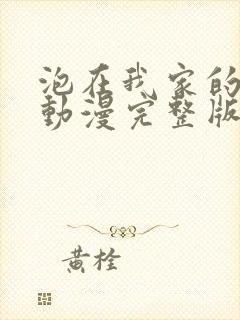 泡在我家的
動漫完整版
黃栓